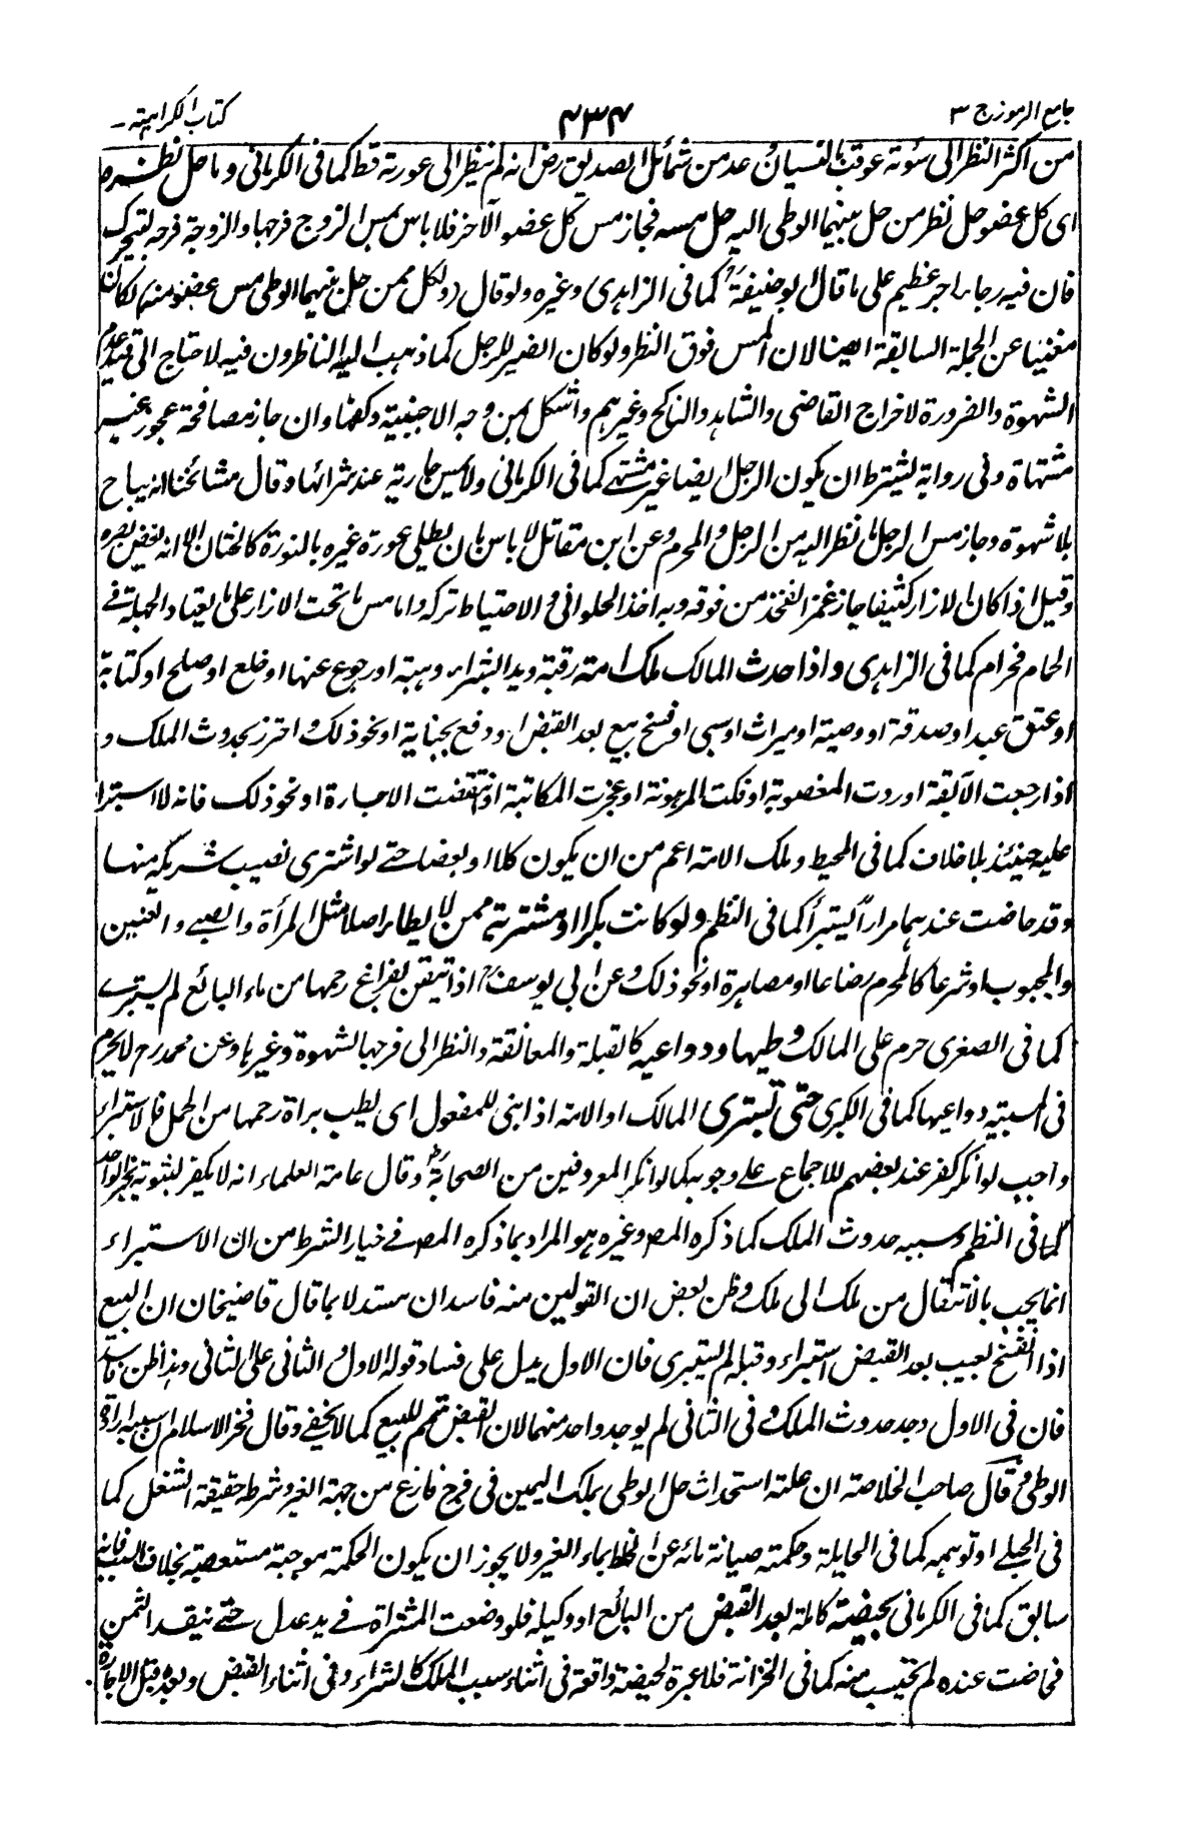 جامع الرموز ج ٣
٤٣٤
كتاب الكراهية
من اكثر النظر الى سوءته عوقب بالنسيان وعد من شمائل الصديق رض انه لم ينظر الى عورته قط كما فى الكرمانى وما حل نظره
اى كل عضو حل نظر من حل بينهما الوطى اليه حل مسه فجاز مس كل عضو الآخر فلا باس بمس الزوج فرجها والزوجة فرجه ليتحرك
فان فيه رجاء اجر عظيم على ما قال ابو حنيفة كما فى الزاهدى وغيره ولو قال ولكل ممن حل بينهما الوطى مس عضو منه لكان
مغنيا عن الجملة السابقة ايضا لان المس فوق النظر ولو كان الضمير للرجل كما ذهب اليه الناظرون فيه لاحتاج الى قيد عدم
الشهوة والضرورة لاخراج القاضى والشاهد والناكح وغيرهم واشكل بمن وجه الاجنبية وكفها وان جاز مصافحة عجوز غير
مشتهاة وفى رواية يشترط ان يكون الرجل ايضا غير مشتهى كما فى الكرمانى ولا يمس جارية عند شرائها وقال مشائخنا انه يباح
بلا شهوة وجاز مس الرجل ما نظر اليه من الرجل والمحرم وعن ابن مقاتل لا باس بان يطلى عورة غيره بالنورة كالختان الا انه يغض بصره
وقيل اذا كان الازار كثيفا جاز غمز الفخذ من فوقه وبه اخذ الحلوانى والاحتياط تركه واما مس ما تحت الازار على ما يعتاد الجهلة فى
الحمام فحرام كما فى الزاهدى واذا حدث المالك ملك امة رقبة ويدا بشراء وهبة او رجوع عنها او خلع او صلح او كتابة
او عتق عبد او صدقة او وصية او ميراث او سبى او فسخ بيع بعد القبض او دفع بجناية او نحو ذلك واحترز بحدوث الملك و
اذا رجعت الآبقة او ردت المغصوبة او فكت المرهونة او عجزت المكاتبة او انتقضت الاجارة او نحو ذلك فانه لا استبراء
عليه حينئذ بلا خلاف كما فى المحيط وملك الامة اعم من ان يكون كلا او بعضا حتى لو اشترى نصيب شريكه منها
وقد حاضت عندهما مرارا يستبرأ كما فى النظم ولو كانت بكرا او مشترية ممن لا يطأ اصلا مثل المرأة والصبى والعنين
والمجبوب او شرعا كالمحرم رضاعا او مصاهرة او نحو ذلك وعن ابى يوسف اذا تيقن بفراغ رحمها من ماء البائع لم يستبرئ
كما فى الصغرى حرم على المالك وطيها ودواعيه كالقبلة والمعانقة والنظر الى فرجها بشهوة وغيرها وعن محمد رح لا يحرم
فى المسبية دواعيها كما فى الكبرى حتى تستبرى المالك او الامة اذا بنى للمفعول اى يطلب براة رحمها من الحمل فالاستبراء
واجب لو انكر كفر عند بعضهم للاجماع على وجوبه كما لو انكر المعروفين من الصحابة وقال عامة العلماء انه لا يكفر لثبوته بخبر الواحد
كما فى النظم وسببه حدوث الملك كما ذكره المص وغيره وهو المراد بما ذكره المص فى خيار الشرط من ان الاستبراء
انما يجب بالانتقال من ملك الى ملك وظن بعض ان القولين منه فاسدان مستدلا بما قال قاضيخان ان البيع
اذا انفسخ بعيب بعد القبض استبراء وقبله لم يستبرى فان الاول يدل على فساد قوله الاول والثانى على الثانى وهذا ظن فاسد
فان فى الاول وجد حدوث الملك وفى الثانى لم يوجد واحد منهما لان القبض متمم للبيع كما لا يخفى وقال فخر الاسلام ان سببه ارادة
الوطى وقال صاحب الخلاصة ان علته استحداث حل الوطى بملك اليمين فى فرج فارغ من جهة الغير وشرطه حقيقة الشغل كما
فى الحبلى او توهمه كما فى الحايلة وحكمته صيانة مائه عن الخلط بماء الغير ولا يجوز ان يكون الحكمة موجبة مستعصية بخلاف السبب فانه
سابق كما فى الكرمانى بحيضة كاملة بعد القبض من البائع او وكيله فلو وضعت المشتراة فى يد عدل حتى ينقد الثمن
فحاضت عنده لم تحتسب منه كما فى الخزانة فلا عبرة لحيضة واقعة فى اثناء سبب الملك كالشراء وفى اثناء القبض وبعده قبل الاجازة